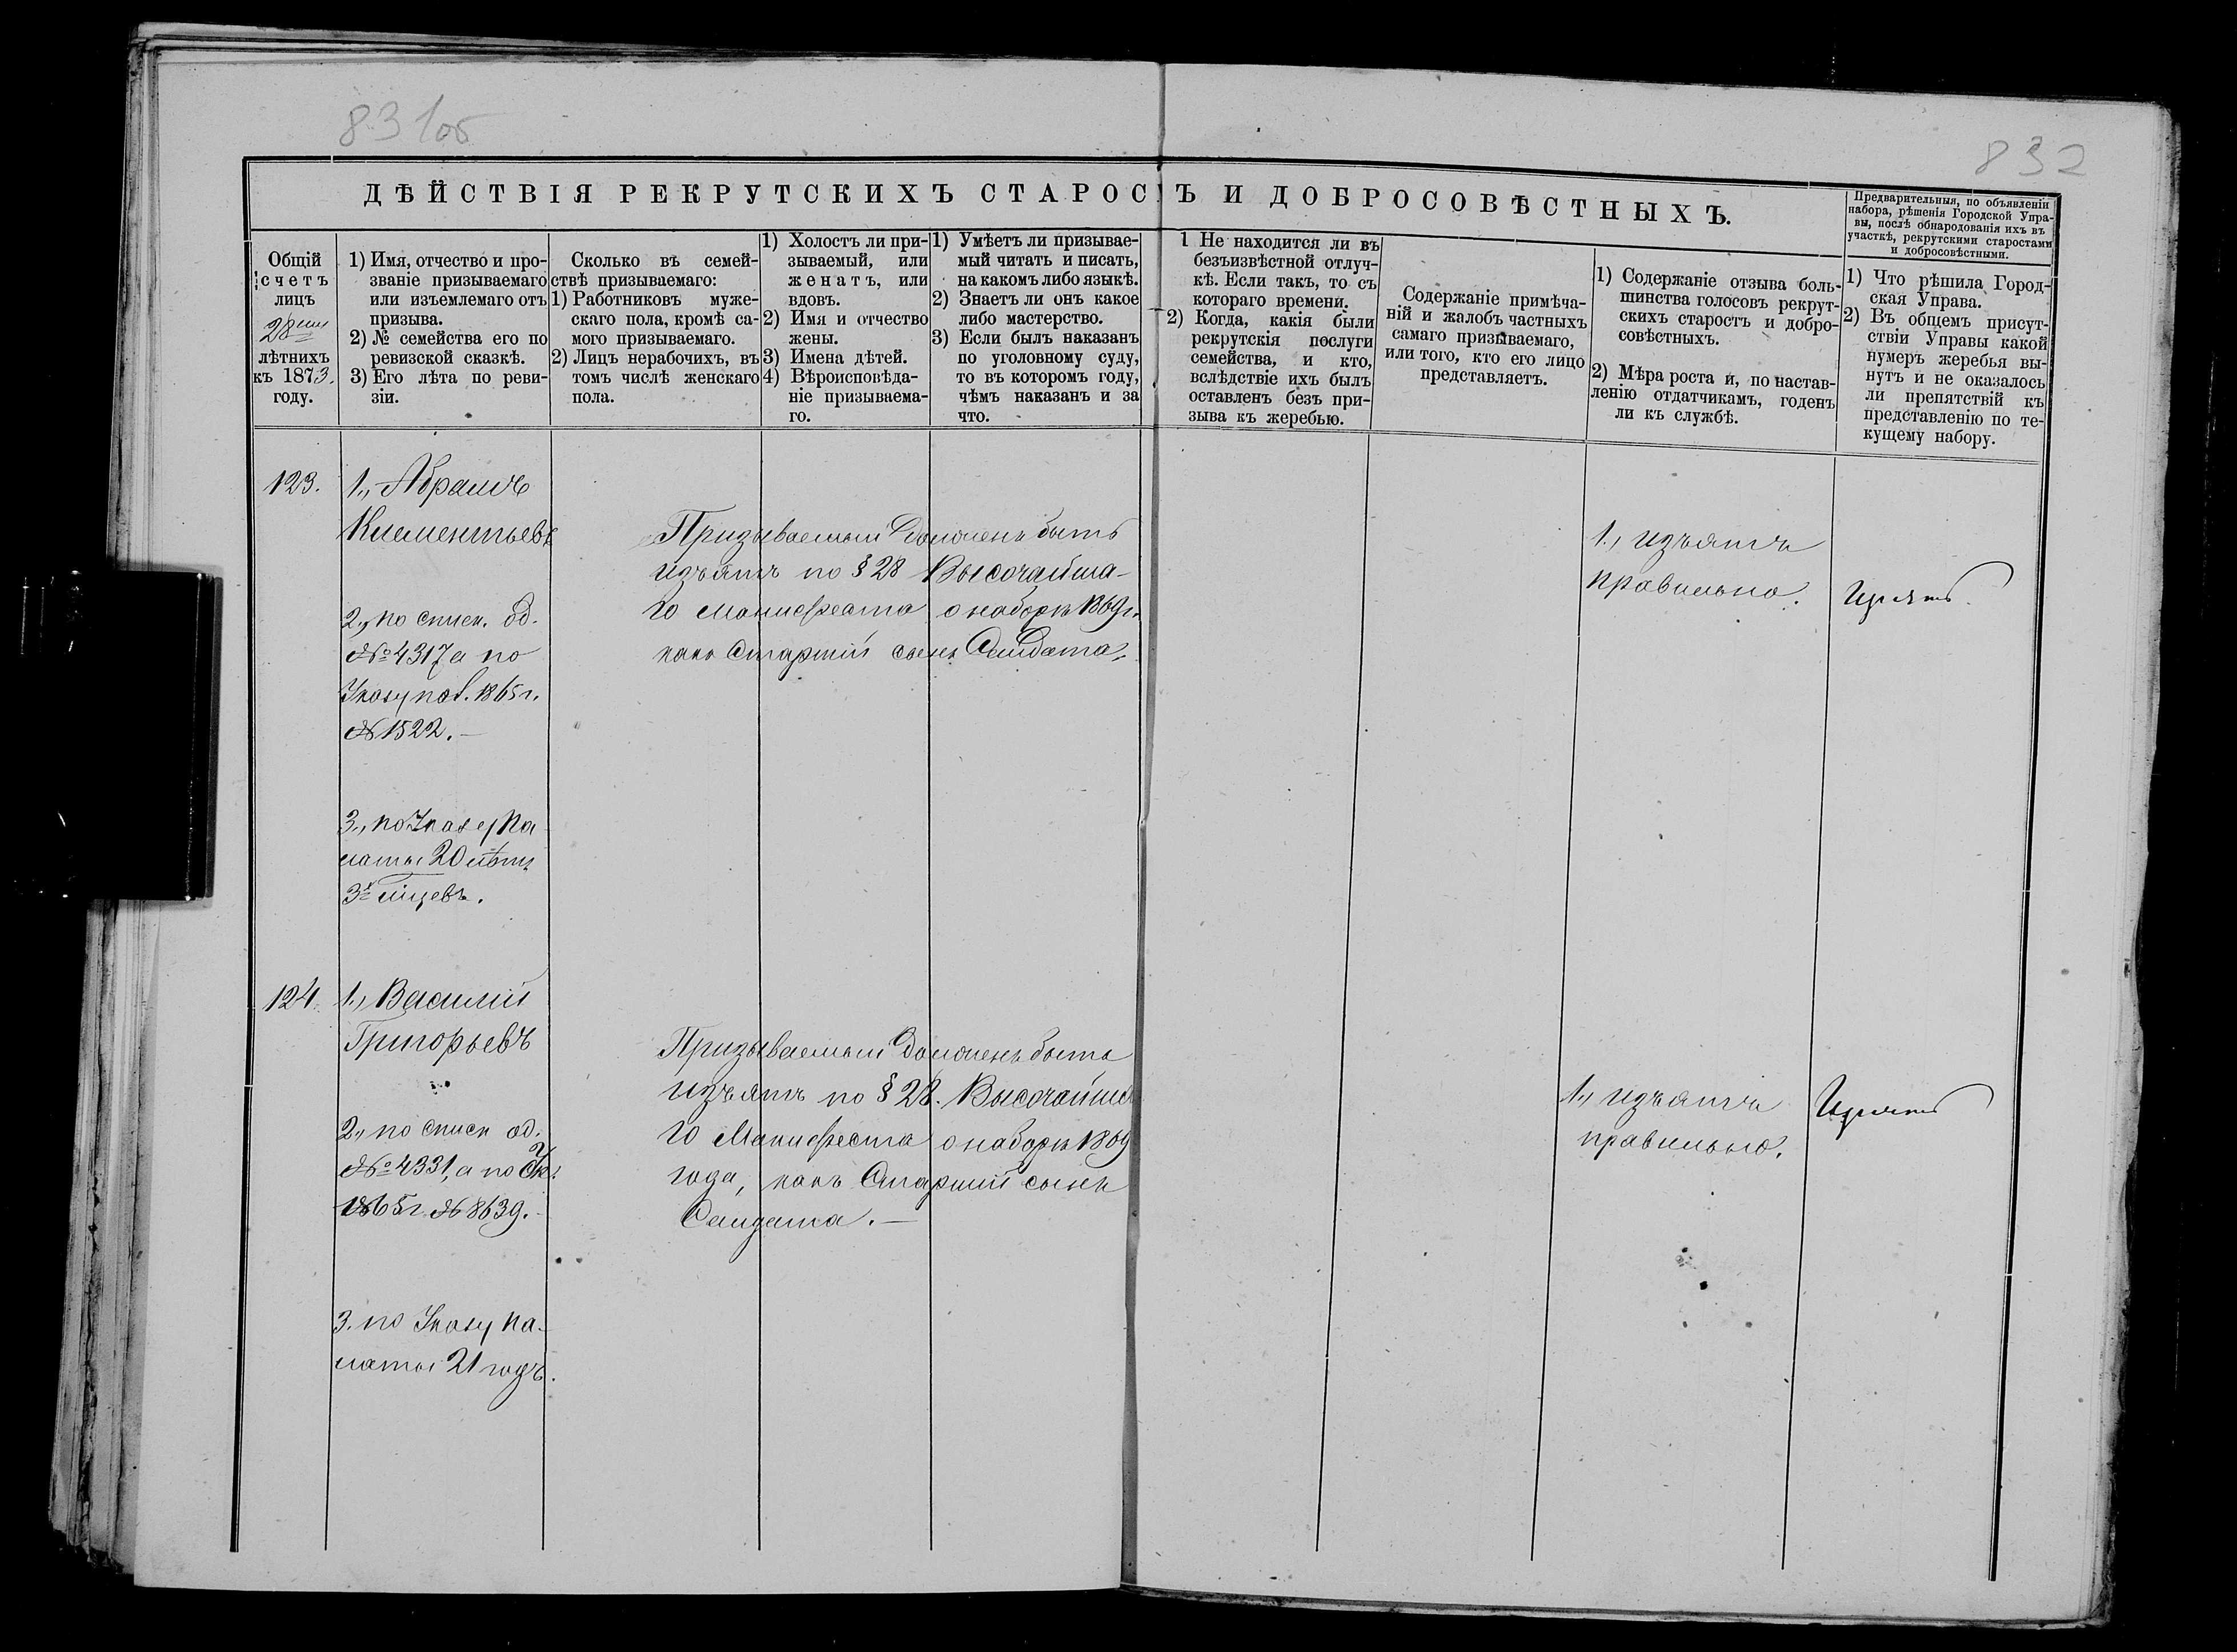 831об
832
ДѢЙСТВІЯ РЕКРУТСКИХЪ СТАРОСТЪ И ДОБРОСОВѢСТНЫХЪ.
Предварительныя, по объявленіи
набора, рѣшенія Городской Упра-
вы, послѣ обнародованія ихъ въ
участкѣ, рекрутскими старостами
и добросовѣстными.
Общій
счетъ
лицъ
28ми
лѣтнихъ
къ 1873.
году.
1) Имя, отчество и про-
званіе призываемаго
или изъемлемаго отъ
призыва.
2) № семейства его по
ревизской сказкѣ.
3) Его лѣта по реви-
зіи.
Сколько въ семей-
ствѣ призываемаго:
1) Работниковъ муже-
скаго пола, кромѣ са-
мого призываемаго.
2) Лицъ нерабочихъ, въ
томъ числѣ женскаго
пола.
1) Холостъ ли при-
зываемый, или
женатъ, или
вдовъ.
2) Имя и отчество
жены.
3) Имена дѣтей.
4) Вѣроисповѣда-
ніе призываема-
го.
1) Умѣетъ ли призывае-
мый читать и писать,
на какомъ либо языкѣ.
2) Знаетъ ли онъ какое
либо мастерство.
3) Если былъ наказанъ
по уголовному суду,
то въ которомъ году,
чѣмъ наказанъ и за
что.
1 Не находится ли въ
безъизвѣстной отлуч-
кѣ. Если такъ, то съ
котораго времени.
2) Когда, какія были
рекрутскія послуги
семейства, и кто,
вслѣдствіе ихъ былъ
оставленъ безъ при-
зыва къ жеребью.
Содержаніе примѣча-
ній и жалобъ частныхъ
самаго призываемаго,
или того, кто его лицо
представляетъ.
1) Содержаніе отзыва боль-
шинства голосовъ рекрут-
скихъ старостъ и добро-
совѣстныхъ.
2) Мѣра роста и, по настав-
ленію отдатчикамъ, годенъ
ли къ службѣ.
1) Что рѣшила Город-
ская Управа.
2) Въ общемъ присут-
ствіи Управы какой
нумеръ жеребья вы-
нутъ и не оказалось
ли препятствій къ
представленію по те-
кущему набору.
123.
1., Абрамъ
Клементьевъ
2., по списк. од.
№ 4317 а по
Указу пал. 1865 г.
№ 1522.—
3., по Указу Па-
латы 20 лѣтъ
3х мцевъ.
Призываемый долженъ быть
изъятъ по § 28 Высочайша-
го манифеста о наборѣ 1869 г.
какъ Старшій сынъ Солдата.
1., изъятъ
правильно.
Изъятъ.
124.
1., Василій
Григорьевъ
2., по списк од.
№ 4331, а по Ук.
1865 г. № 8639.
3. по Указу Па-
латы 21 годъ.
Призываемый долженъ быть
изъятъ по § 28. Высочайша
го Манифеста о наборѣ 1869
года, какъ Старшій сынъ
Солдата.—
1., изъятъ
правильно.
Изъятъ